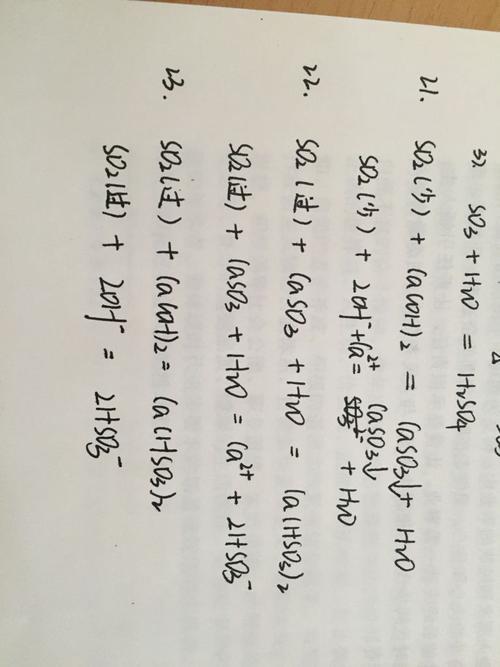 SO3 + H2O = H2SO4
21. SO2(少) + Ca(OH)2 = CaSO3↓ + H2O
SO2(少) + 2OH⁻ + Ca²⁺ = CaSO3↓ + H2O
22. SO2(过) + CaSO3 + H2O = Ca(HSO3)2
SO2(过) + CaSO3 + H2O = Ca²⁺ + 2HSO3⁻
23. SO2(过) + Ca(OH)2 = Ca(HSO3)2
SO2(过) + 2OH⁻ = 2HSO3⁻